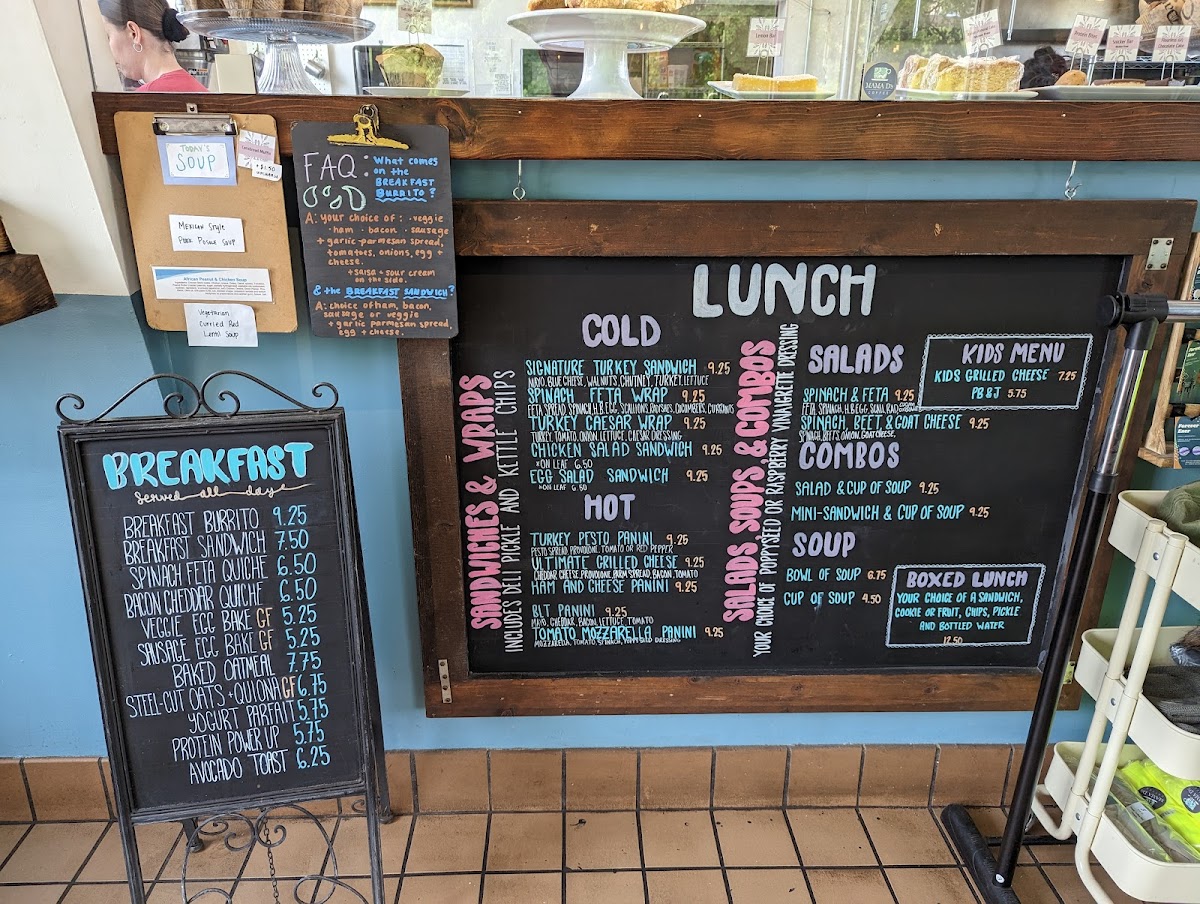 TODAY'S
SOUP
MEXICAN Style
PORK POSOLE SOUP
African Peanut & Chicken Soup
Vegetarian
Curried Red
Lentil Soup
FAQ:
What comes
on the
BREAKFAST
BURRITO?
A: your choice of: · veggie
· ham · bacon · sausage
+ garlic-parmesan spread,
tomatoes, onions, egg +
cheese.
+ salsa + sour cream
on the side.
& the BREAKFAST SANDWICH?
A: choice of ham, bacon,
sausage or veggie
+ garlic parmesan spread
egg + cheese.
MAMA D's
COFFEE
BREAKFAST
served all day
BREAKFAST BURRITO 9.25
BREAKFAST SANDWICH 7.50
SPINACH FETA QUICHE 6.50
BACON CHEDDAR QUICHE 6.50
VEGGIE EGG BAKE GF 5.25
SAUSAGE EGG BAKE GF 5.25
BAKED OATMEAL 7.75
STEEL-CUT OATS + QUIONA GF 6.75
YOGURT PARFAIT 5.75
PROTEIN POWER UP 5.75
AVOCADO TOAST 6.25
LUNCH
SANDWICHES & WRAPS
INCLUDES DELI PICKLE AND KETTLE CHIPS
COLD
SIGNATURE TURKEY SANDWICH 9.25
MAYO, BLUE CHEESE, WALNUTS, CHUTNEY, TURKEY, LETTUCE
SPINACH FETA WRAP 9.25
FETA SPREAD, SPINACH, H.B. EGG, SCALLIONS, RADISHES, CUCUMBERS, CURRANTS
TURKEY CAESAR WRAP 9.25
TURKEY, TOMATO, ONION, LETTUCE, CAESAR DRESSING
CHICKEN SALAD SANDWICH 9.25
*ON LEAF 6.50
EGG SALAD SANDWICH 9.25
*ON LEAF 6.50
HOT
TURKEY PESTO PANINI 9.25
PESTO SPREAD, PROVOLONE, TOMATO OR RED PEPPER
ULTIMATE GRILLED CHEESE 9.25
CHEDDAR CHEESE, PROVOLONE, PARM SPREAD, BACON, TOMATO
HAM AND CHEESE PANINI 9.25
BLT PANINI 9.25
MAYO, CHEDDAR, BACON, LETTUCE, TOMATO
TOMATO MOZZARELLA PANINI 9.25
MOZZARELLA, TOMATO, SPINACH, POPPYSEED DRESSING
SALADS, SOUPS, & COMBOS
YOUR CHOICE OF POPPYSEED OR RASPBERRY VINAIGRETTE DRESSING
SALADS
SPINACH & FETA 9.25
FETA, SPINACH, H.B. EGG, SCALL, RAD
SPINACH, BEET, & GOAT CHEESE 9.25
SPINACH, BEETS, ONION, GOAT CHEESE,
COMBOS
SALAD & CUP OF SOUP 9.25
MINI-SANDWICH & CUP OF SOUP 9.25
SOUP
BOWL OF SOUP 6.75
CUP OF SOUP 4.50
KIDS MENU
KIDS GRILLED CHEESE 7.25
PB & J 5.75
BOXED LUNCH
YOUR CHOICE OF A SANDWICH,
COOKIE OR FRUIT, CHIPS, PICKLE
AND BOTTLED WATER
12.50